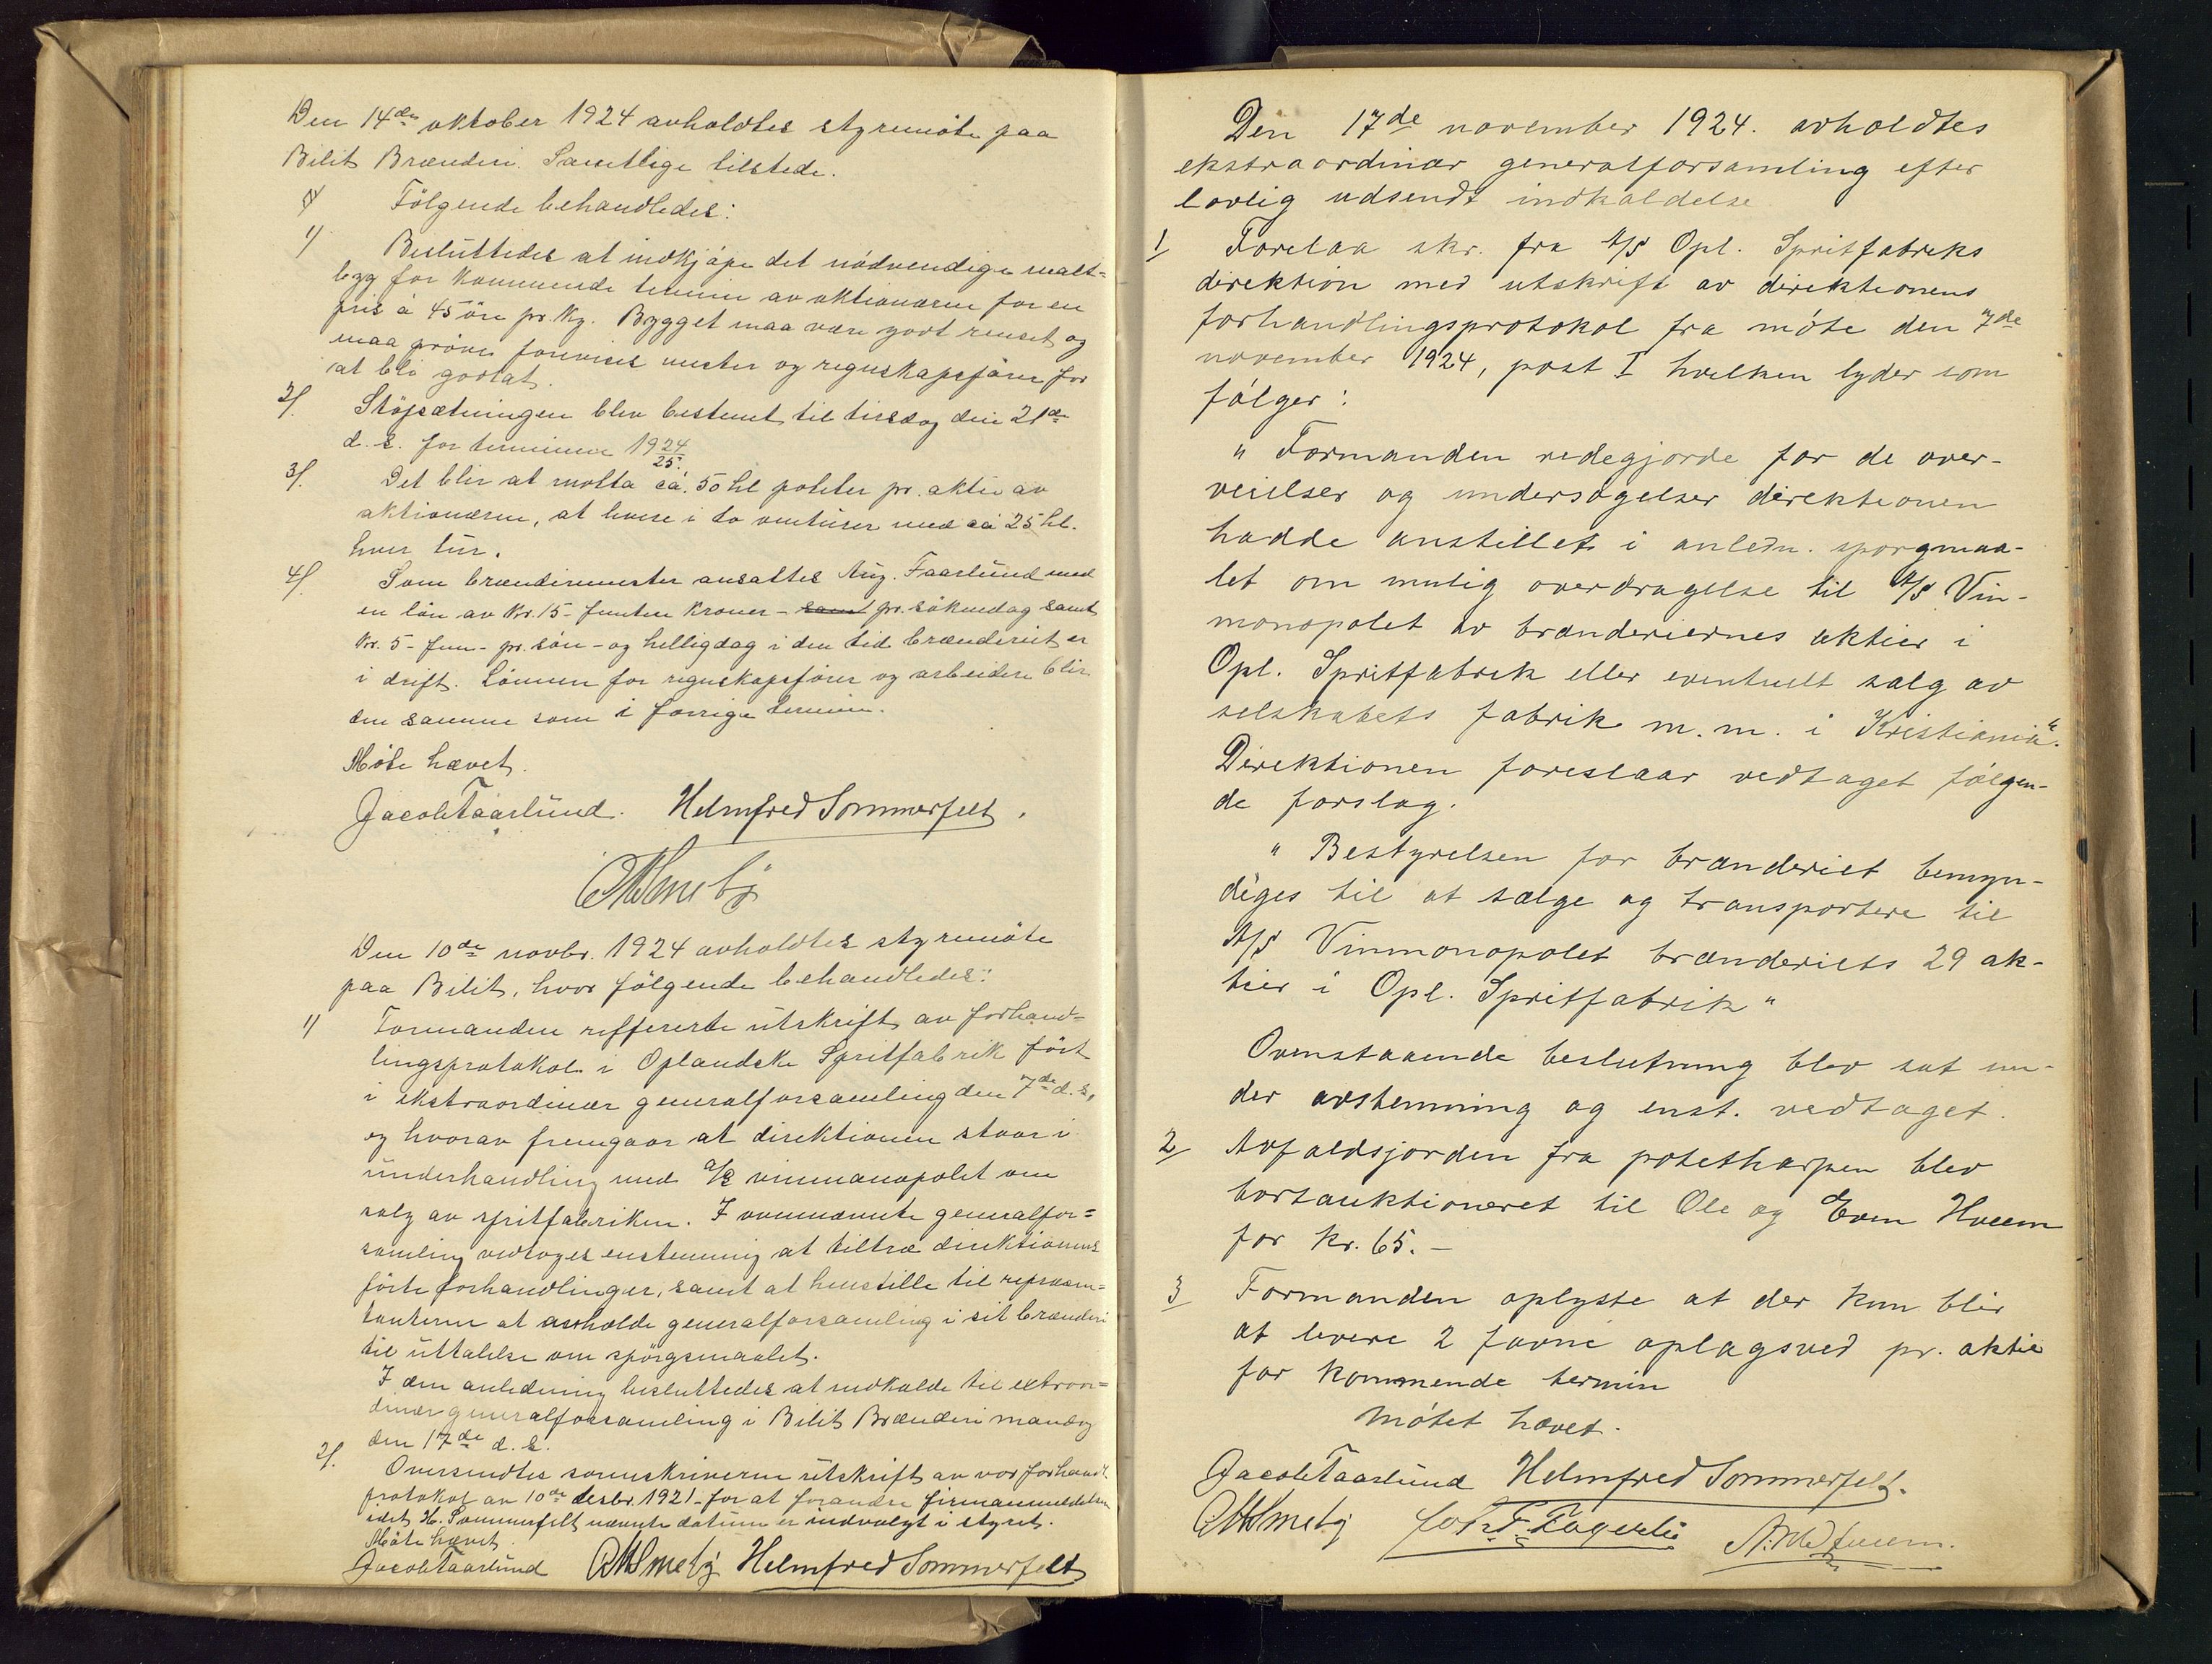 Den 14de oktober 1924 avholdtes styremöte paa
Bilit Brænderi. Samtlige tilstede.
Fölgende behandledes:
1) Besluttedes at indkjöpe det nödvendige malt=
byg for kommende termin av aktionærene for en
pris á 45 öre pr. kg. Bygget maa være godt renset og
maa pröve forevises mester og regnskapsförer for
at bli godtat.
2). Stöpsætningen blev bestemt til tirsdag den 21de
d. s. for terminen 1924/25.
3). Det blir at motta ca. 50 hl poteter pr. aktie av
aktionærerne, at levere i to omturer med ca 25 hl.
hver tur.
4). Som brænderimester ansattes Aug. Faarlund med
en lön av Kr. 15 - femten kroner - samt pr. söknedag samt
Kr. 5 - fem - pr. sön - og helligdag i den tid brænderiet er
i drift. Lönnen for regnskapsförer og arbeidere blir
den samme som i forrige termin.
Möte hævet.
Jacob Faarlund. Helmfred Sommerfelt.
Den 10de novbr. 1924 avholdtes styremöte
paa Bilit, hvor fölgende behandledes:
1) Formanden reffererte utskrift av forhand=
lingsprotokol i Oplandske Spritfabrik fört
i ekstraordinær generalforsamling den 7de d. s.,
og hvorav fremgaar at direktionen staar i
underhandling med A/S vinmonopolet om
salg av spritfabriken. I ovennævnte generalfor=
samling vedtoges enstemmig at tiltræ direktionens
förte forhandlinger, samt at henstille til repræsen=
tanterne at avholde generalforsamling i sit brænderi
til uttalelse om spörgsmaalet.
I den anledning besluttedes at indkalde til extraor=
dinær generalforsamling i Bilit Brænderi mandag
den 17de d. s.
2). Oversendtes sorenskriveren utskrift av vor forhandl.
protokol av 10de desbr. 1921 for at forandre firmaanmeldelsen
idet H. Sommerfelt nævnte datum er indvalgt i styret.
Möte hævet.
Jacob Faarlund Helmfred Sommerfelt
Den 17de november 1924. avholdtes
ekstraordinær generalforsamling efter
lovlig udsendt indkaldelse
1 Forelaa skr. fra A/S Opl. Spritfabriks
direktion med utskrift av direktionens
forhandlingsprotokol fra möte den 7de
november 1924, post I hvilken lyder som
fölger:
" Formanden redegjorde for de over-
veielser og undersøgelser direktionen
hadde anstillet i anledn. spørgmaa-
let om mulig overdragelse til A/S Vin-
monopolet av brænderiernes aktier i
Opl. Spritfabrik eller eventuelt salg av
selskabets fabrik m. m. i Kristiania".
Direktionen foreslaar vedtaget fölgen-
de forslag.
" Bestyrelsen for brænderiet bemyn-
diges til at sælge og transportere til
A/S Vinmonopolet brænderiets 29 ak-
tier i Opl. Spritfabrik "
Ovenstaaende beslutning blev sat un-
der avstemning og enst. vedtaget.
2 Avfaldsjorden fra potetharpen blev
bortauktioneret til Ole og Even Hveem
for kr. 65. -
3 Formanden oplyste at der kun blir
at levere 2 favne oplagsved pr. aktie
for kommende termin
Mötet hævet.
Jacob Faarlund Helmfred Sommerfelt.